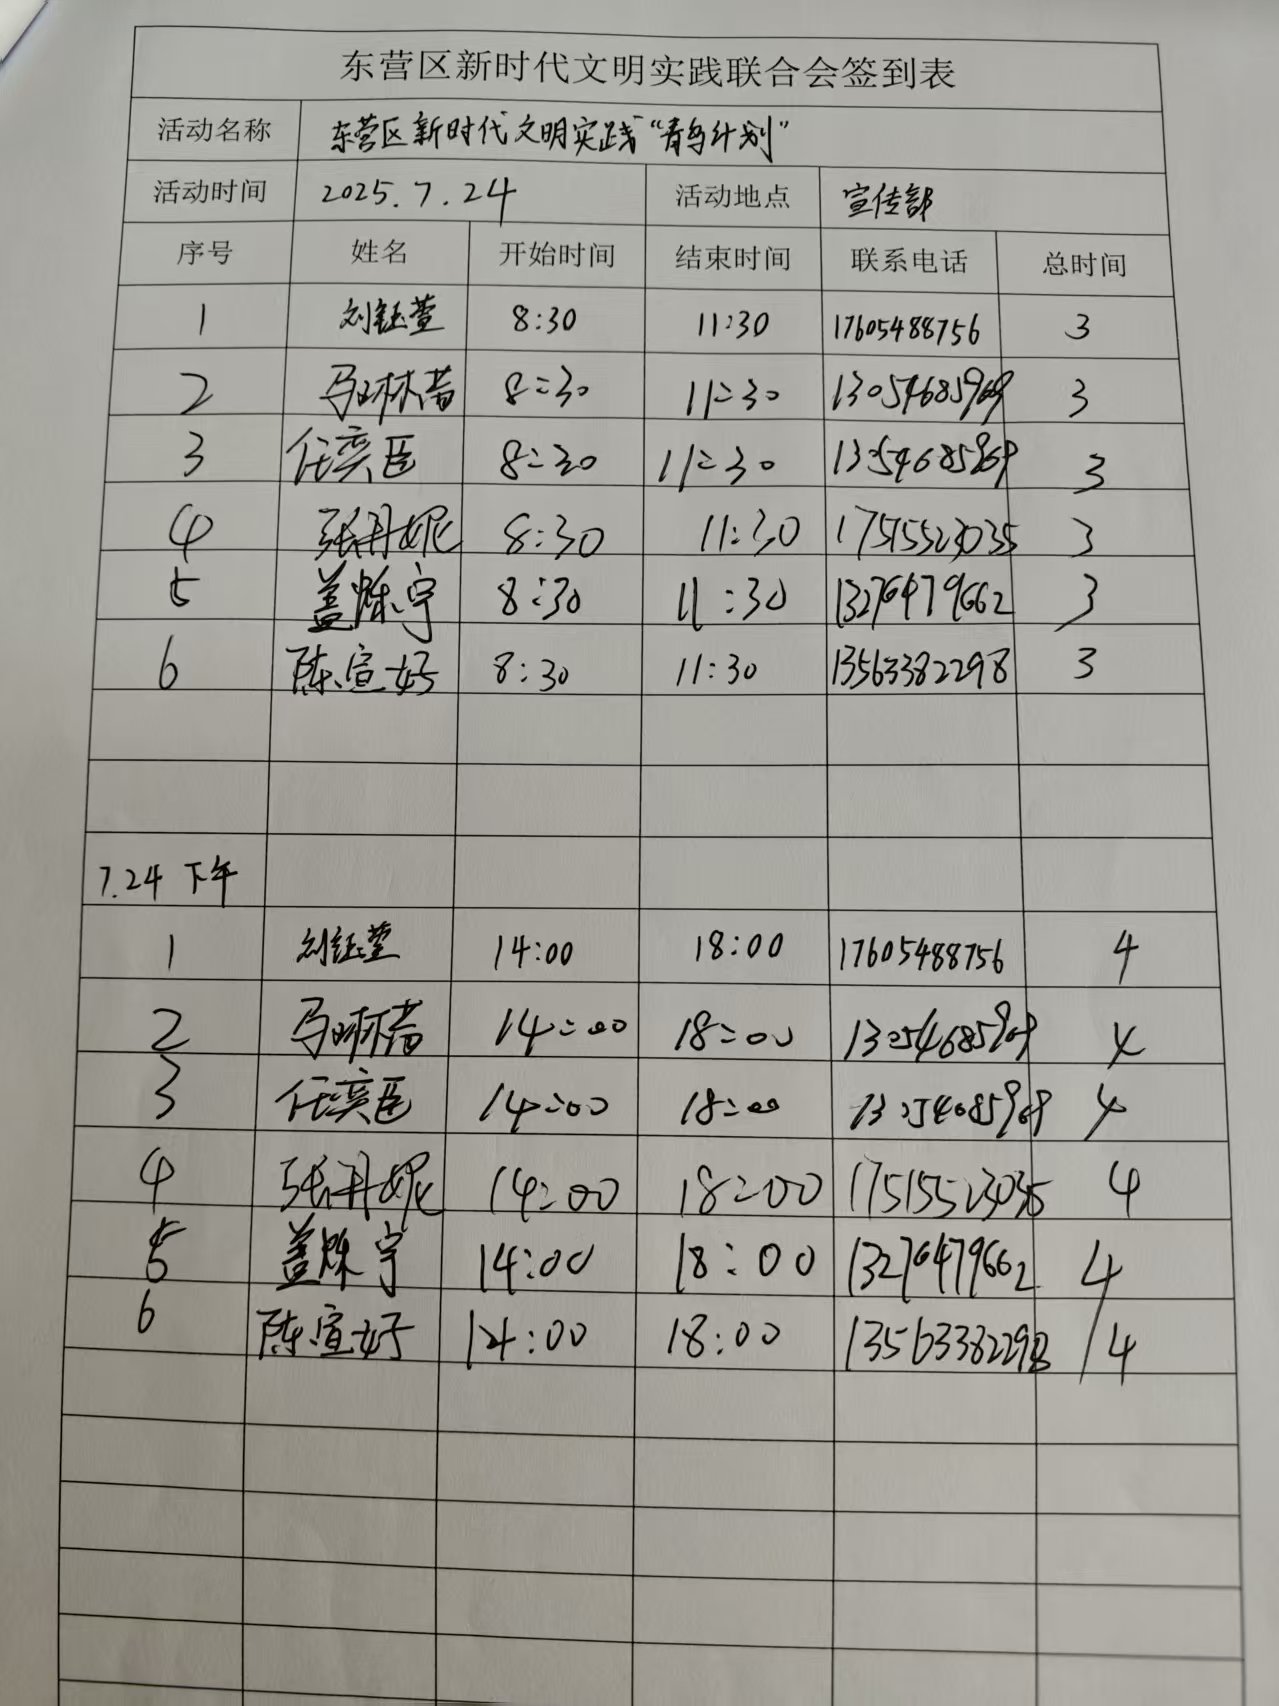 东营区新时代文明实践联合会签到表
活动名称 东营区新时代文明实践“青鸟计划”
活动时间 2025.7.24 活动地点 宣传部
序号 姓名 开始时间 结束时间 联系电话 总时间
1 刘钰萱 8:30 11:30 17605488756 3
2 马琳茜 8:30 11:30 13054685969 3
3 任奕臣 8:30 11:30 13054685969 3
4 张丹妮 8:30 11:30 17515523035 3
5 盖烁宁 8:30 11:30 13276479662 3
6 陈宣妤 8:30 11:30 13563382298 3
7.24 下午
1 刘钰萱 14:00 18:00 17605488756 4
2 马琳茜 14:00 18:00 13054685969 4
3 任奕臣 14:00 18:00 13054685969 4
4 张丹妮 14:00 18:00 17515523035 4
5 盖烁宁 14:00 18:00 13276479662 4
6 陈宣妤 14:00 18:00 13563382298 4